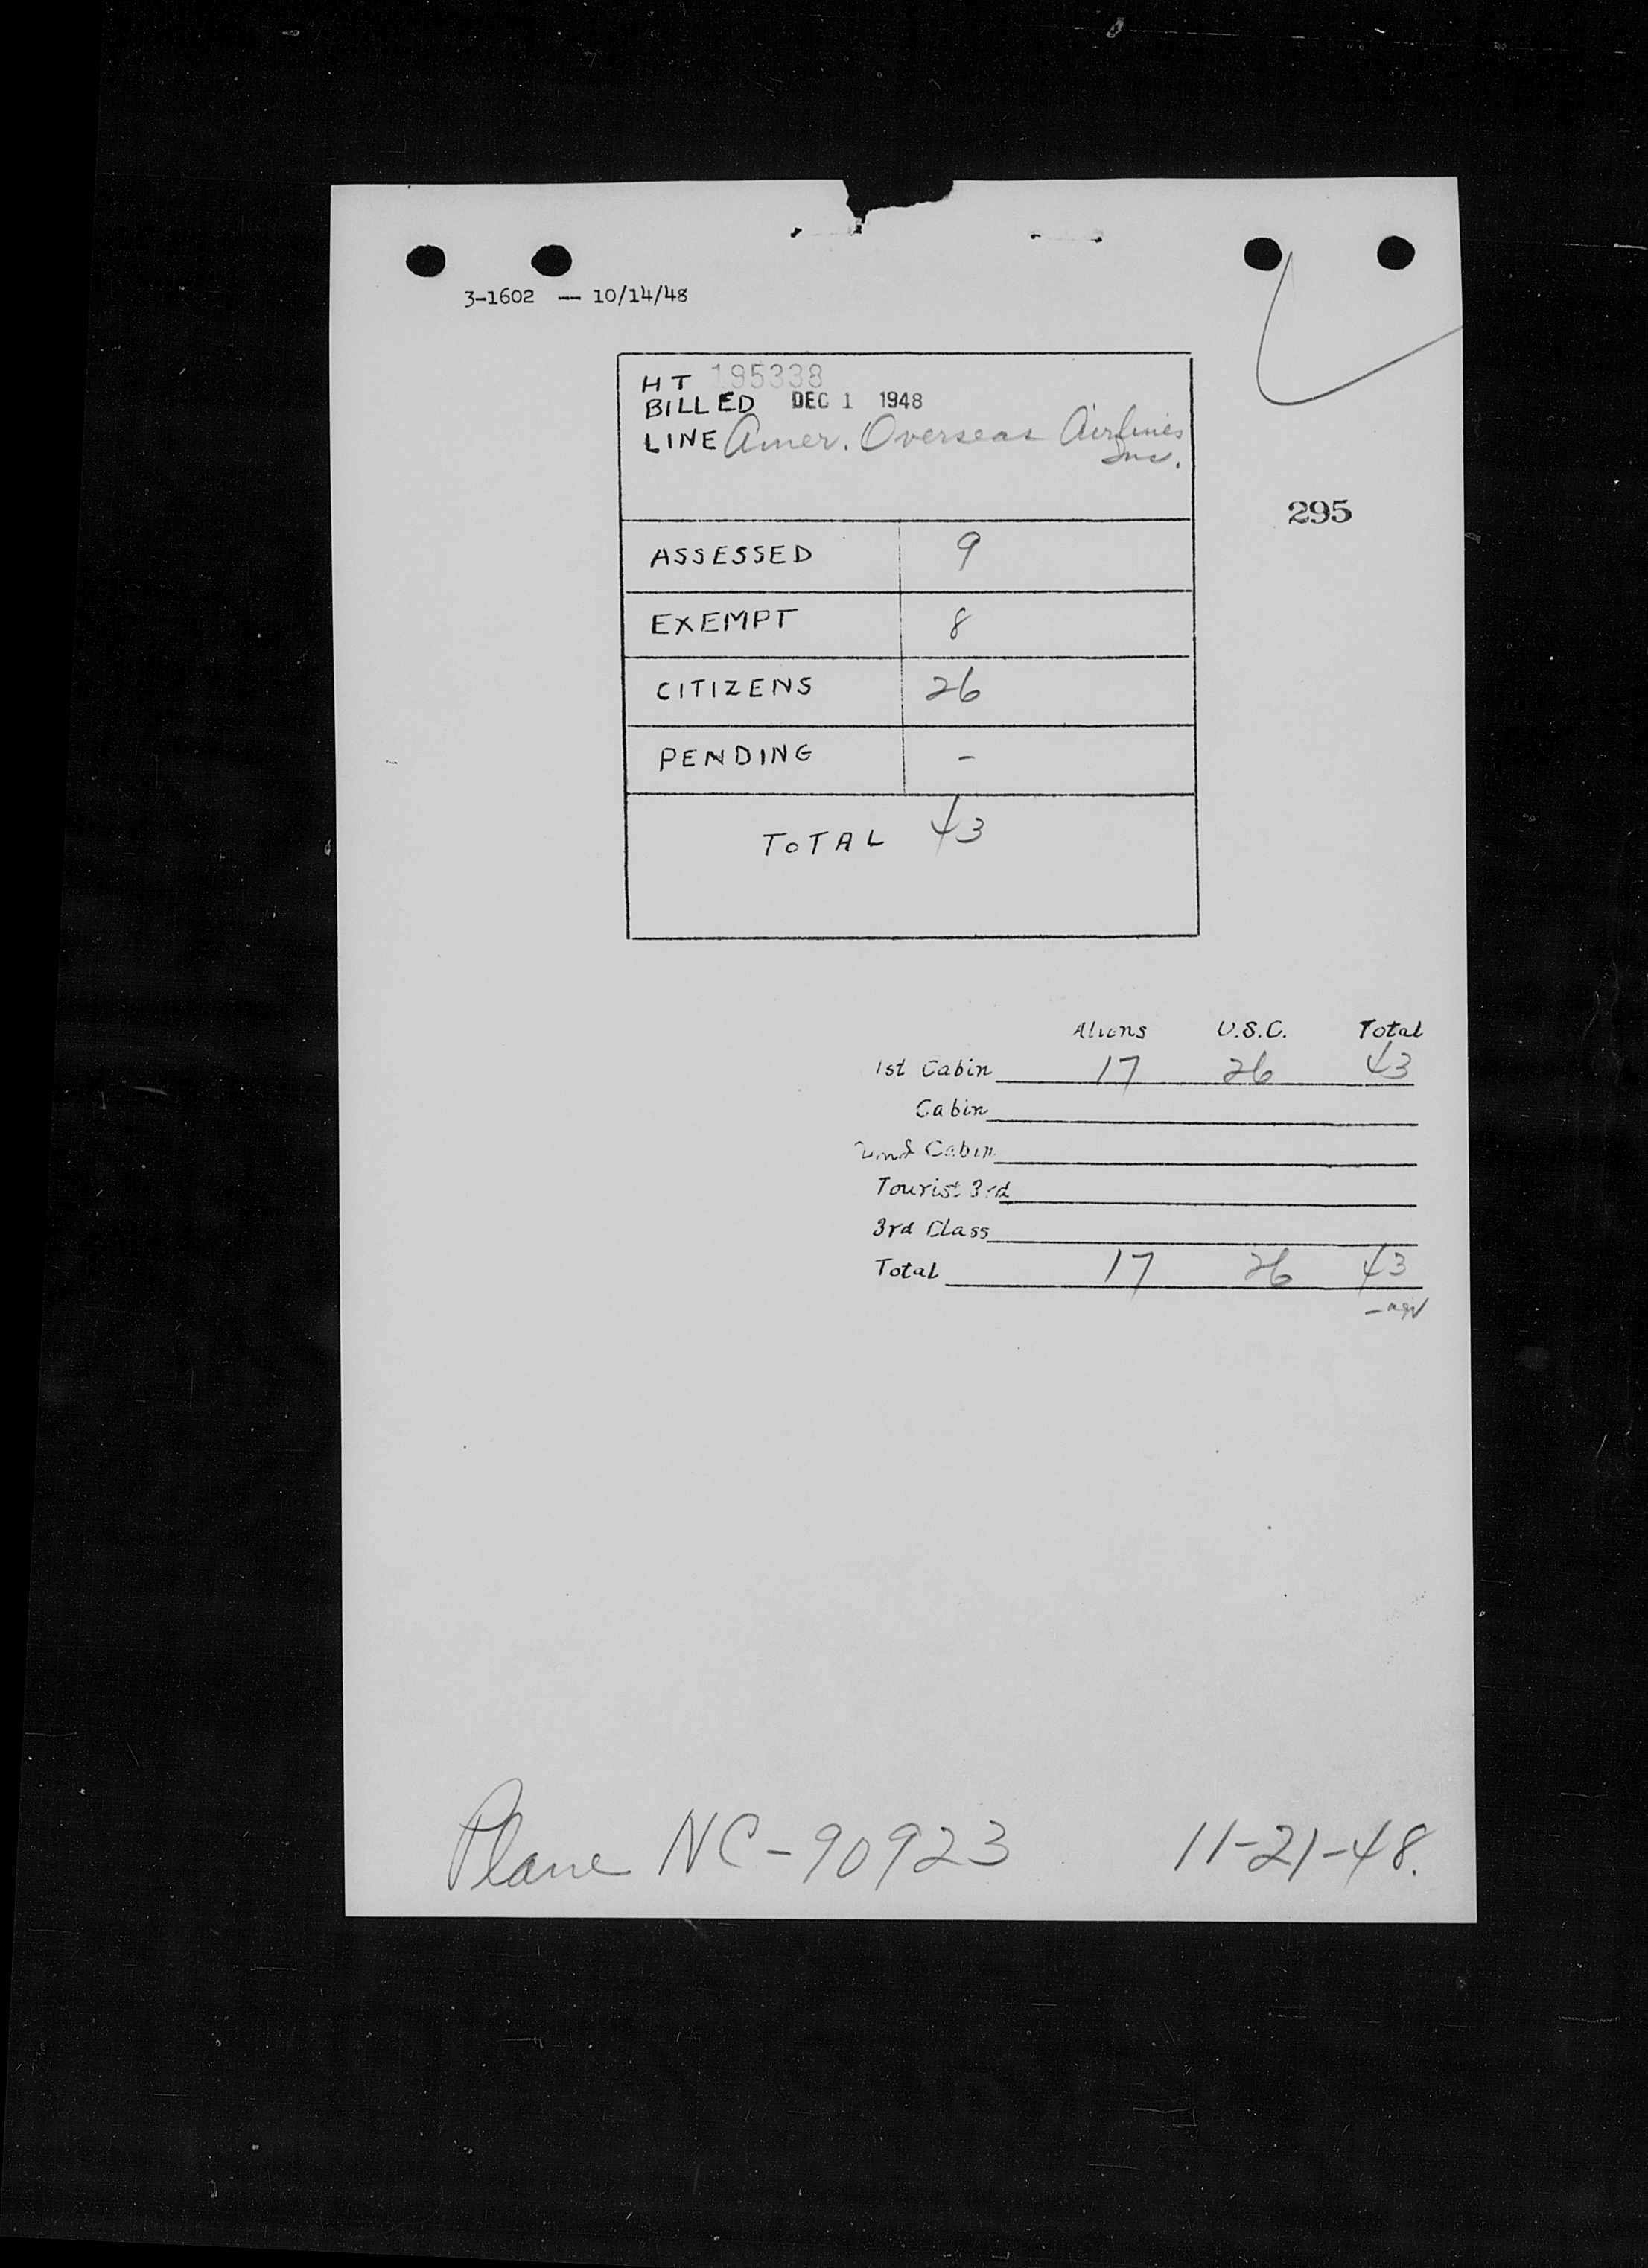 3-1602 — 10/14/48
HT 195338
BILLED DEC 1 1948
LINE Amer. Overseas Airlines
Inc.
295
ASSESSED 9
EXEMPT 8
CITIZENS 26
PENDING -
TOTAL 43
Aliens U.S.C. Total
1st Cabin 17 26 43
Cabin
Cabin
Tourist 3rd
3rd Class
Total 17 26 43
Plane NC-90923 11-21-48.